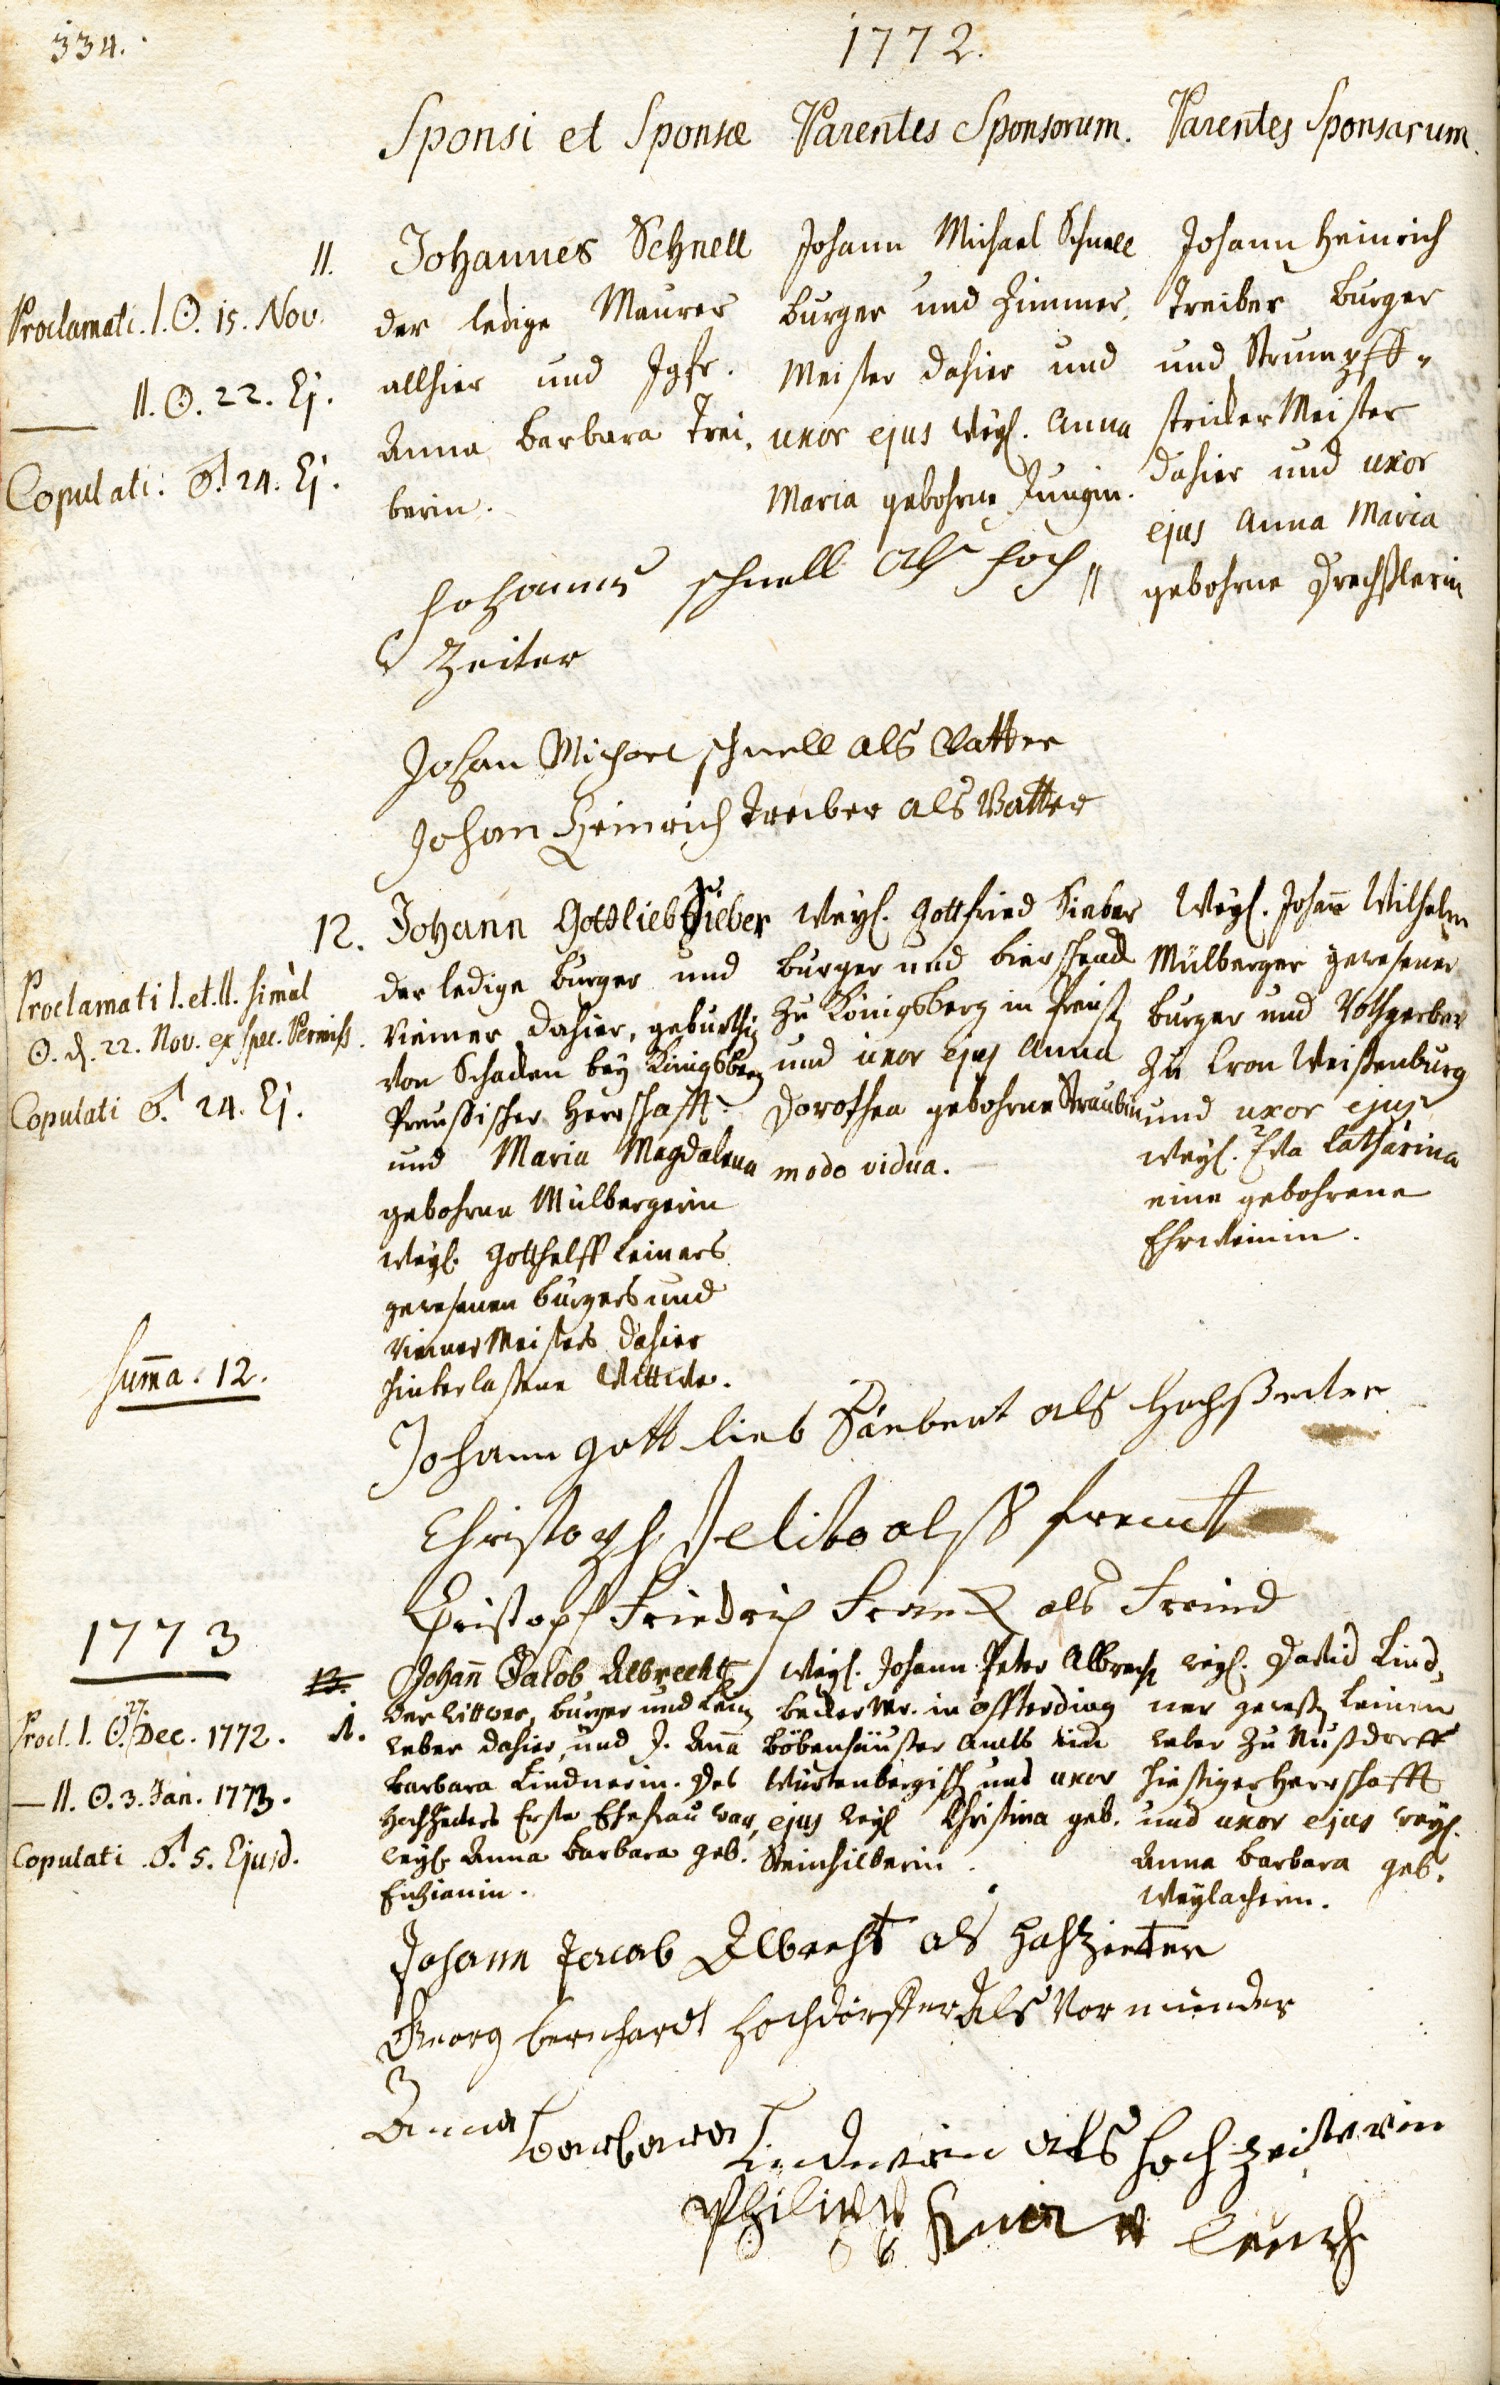 334.
1772.
Sponsi et Sponsæ
Parentes Sponsorum.
Parentes Sponsarum.
11.
Proclamati. I. ☉. 15. Nov.
II. ☉. 22. Ej.
Copulati. ♂. 24. Ej.
Johannes Schnell
der ledige Maurer
allhier und Jgfr.
Anna Barbara Trei,
berin.
Johann Michael Schnell
Burger und Zimmer,
Meister dahier und
uxor ejus weyl. Anna
Maria gebohrne Jungin.
Johann Heinrich
Treiber Burger
und Strumpff-
stricker Meister
dahier und uxor
ejus Anna Maria
gebohrne Drechßlerin
Johannes schnell als hoch
Zeiter
Johan Michael schnell als Vatter
Johan Heinrich Treiber als Vatter
12.
Proclamati I. et. II. simul
☉. d. 22. Nov. ex spec. Permiss.
Copulati ♂. 24. Ej.
Johann Gottlieb Sieber
der ledige Burger und
Riemer dahier, gebürthig
von Schaden bey Königsberg
Preussischer Herrschafft.
und Maria Magdalena
gebohrne Mülbergerin
weyl. Gotthelff Leiners
gewesenen Burgers und
Riemer Meisters dahier
hinterlassene Wittwe.
Weyl. Gottfried Sieber
Burger und Bierschenck
zu Königsberg in Preuss
und uxor ejus Anna
Dorothea gebohrne Straubin
modo vidua.
Weyl. Johann Wilhelm
Mülberger gewesener
Burger und Rothgerber
zu Cron Weissenburg
und uxor ejus
weyl. Eva Catharina
eine gebohrene
Ehrweinin.
Summa. 12.
Johann gottlieb Sänbert als Hochzeiter
Christoph alß freint
Christoph Friedrich Franck als Freind
1773
13.
1.
Procl. I. ☉. 27. Dec. 1772.
II. ☉. 3. Jan. 1773.
Copulati ♂. 5. Ejusd.
Johann Jacob Albrecht
der Wittwer, Burger und Lein
weber dahier, und J. Anna
Barbara Lindnerin. Des
Hochzeiters Erste Ehefrau war,
weyl. Anna Barbara geb.
Enzianin.
Weyl. Johann Peter Albrecht
Becker Mr. in Offterding
Böbenhäußer Amts im
Würtenbergisch und uxor
ejus weyl Christina geb.
Steinhilberin.
weyl. David Lind,
ner geweßt Leinen
weber zu Nußdorff
hiesiger Herrschafft
und uxor ejus weyl.
Anna Barbara geb.
Weylacherin.
Johann Jacob Albrecht als Hochzeiter
Georg Bernhardt Hochdörffer Als Vormünder
Anna barbara Lindnerin als hochzeiterin
Philipp